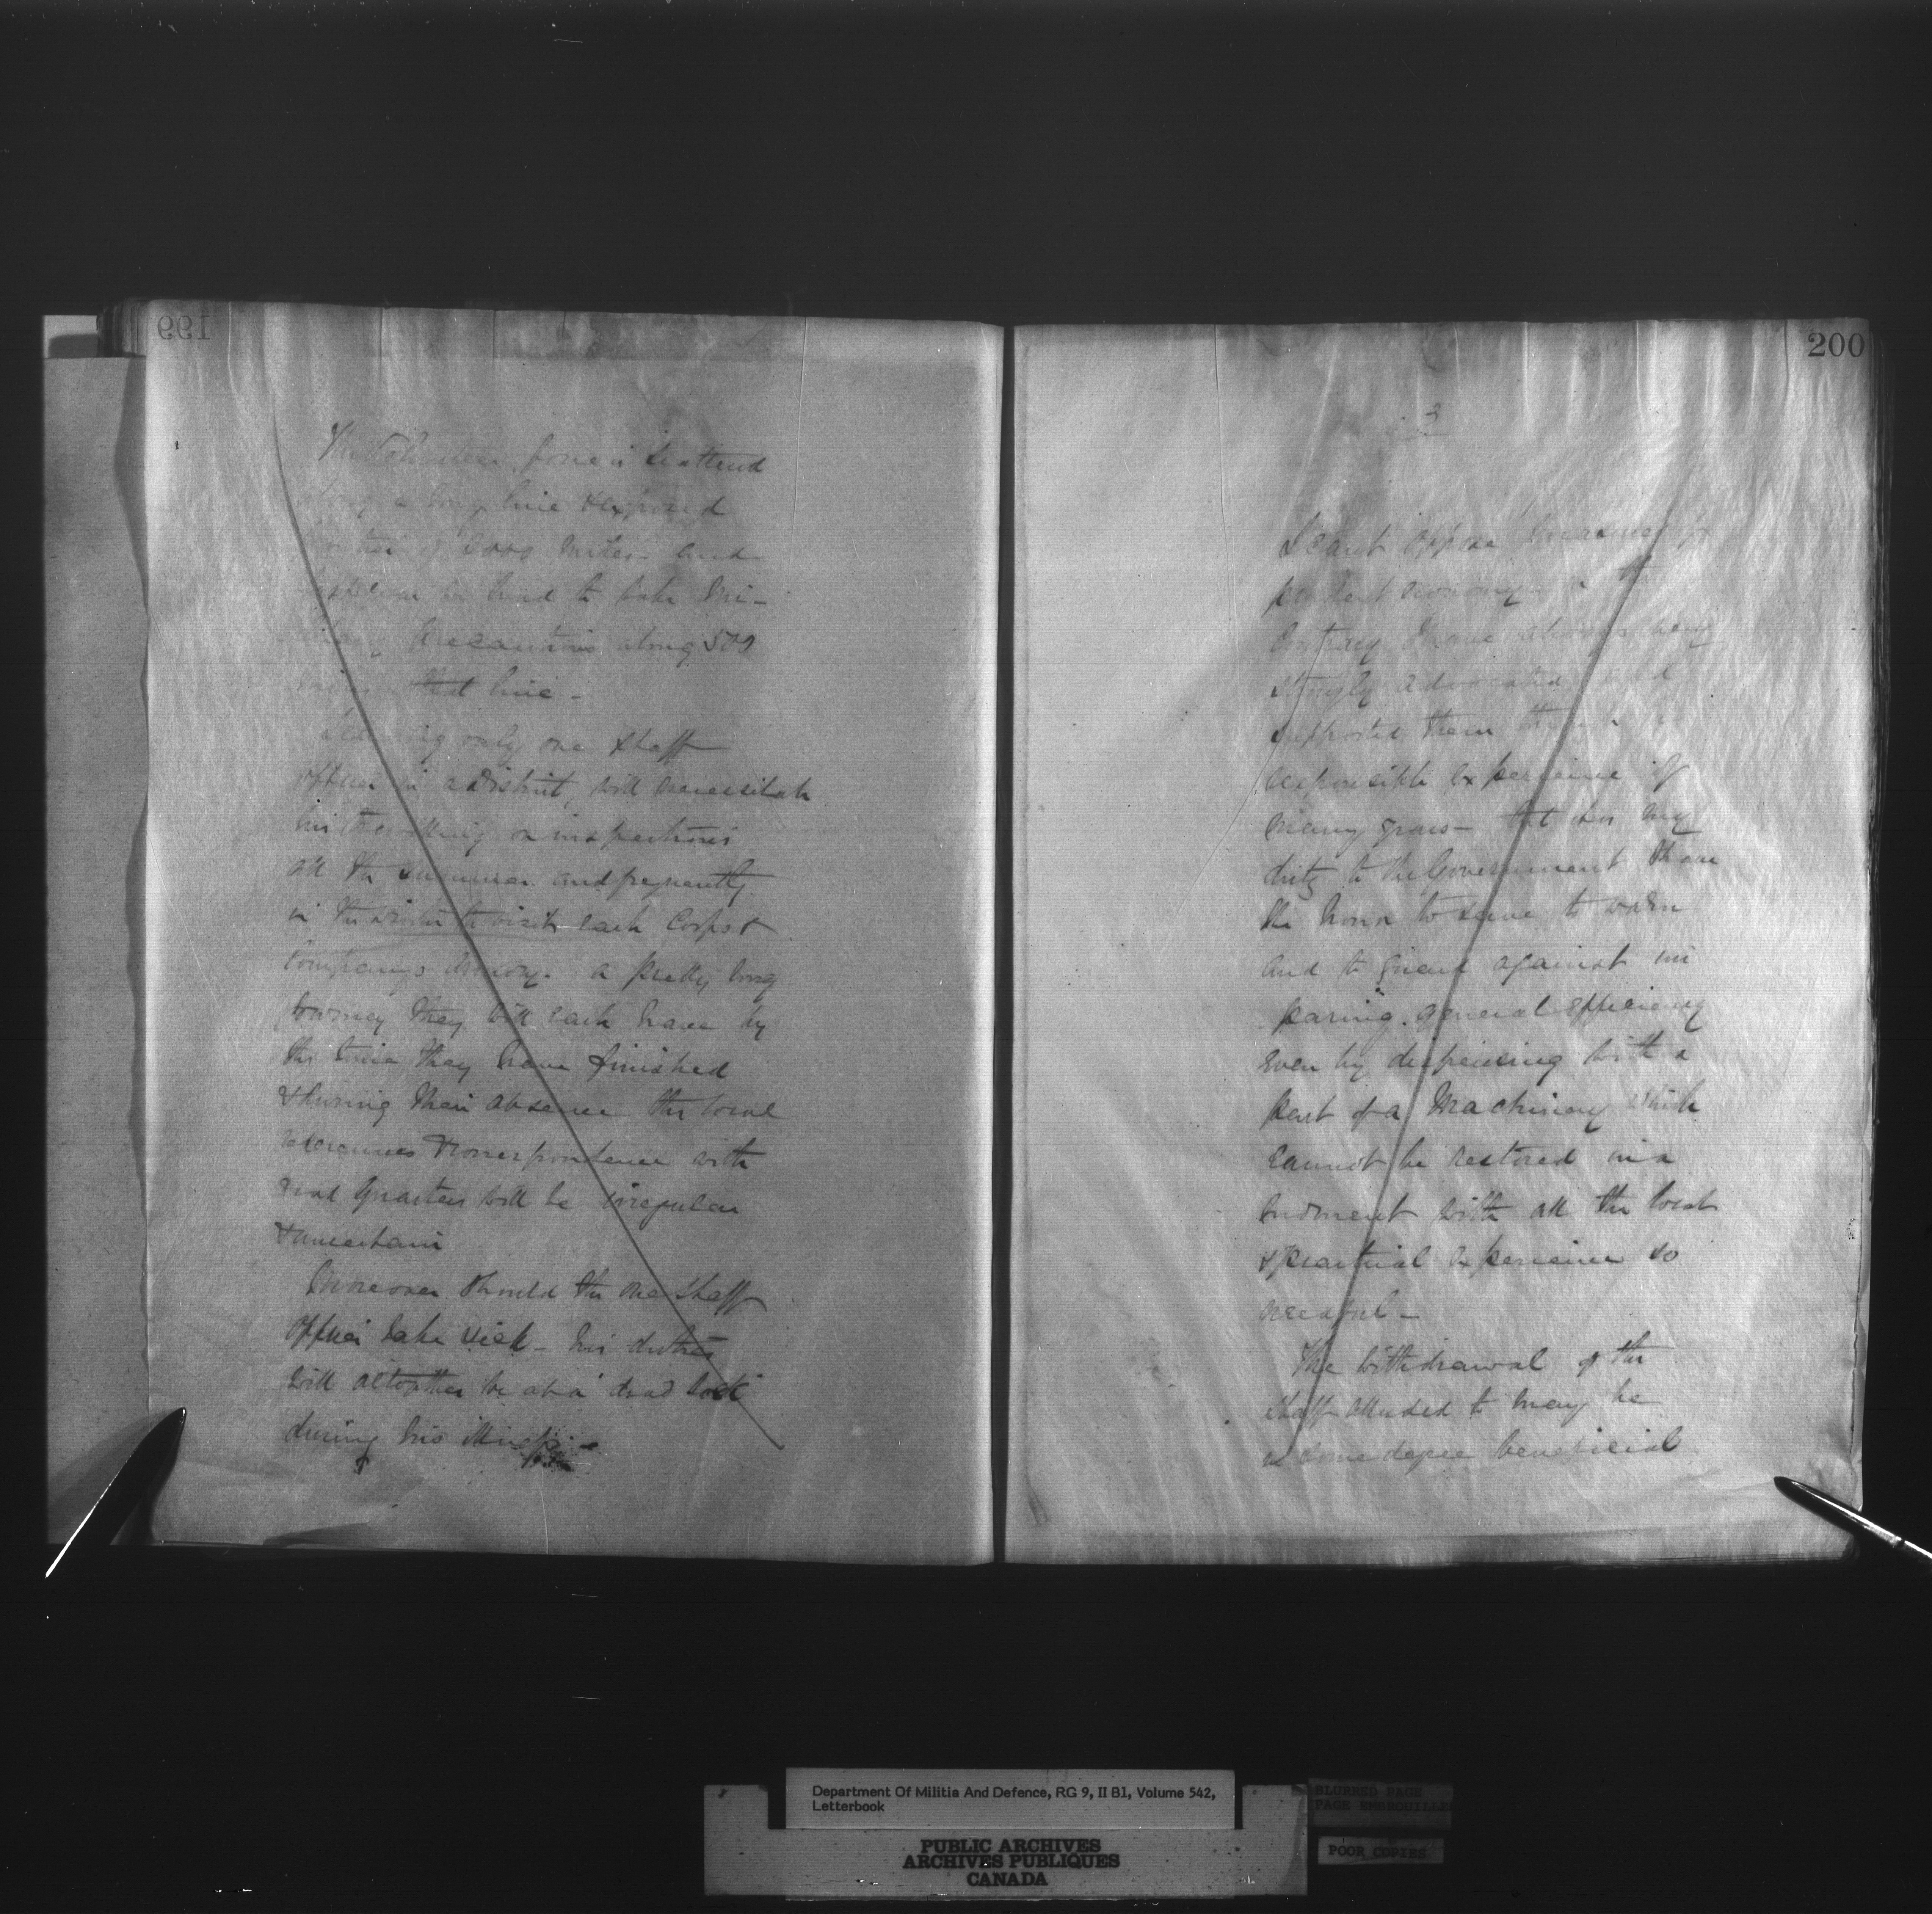 199
The Volunteer force is scattered
along a long line & exposed
frontier of 2000 miles - and
be hired to take Mi-
litary Precautions along 500
miles of that line -
Leaving only one Staff
Officer in a District, will necessitate
his travelling on inspections
all the summer and frequently
in the winter to visit each Corps &
Company's Armory. a pretty long
journey they will each have by
the time they have finished
& during their absence the local
references & correspondence with
Head Quarters will be irregular
& uncertain
Moreover should the one Staff
Officer take sick - his duties
will altogether be at a "dead lock"
during his illness -
200
2
I can't oppose measures of
prudent economy - on the
Contrary I have always very
strongly advocated and
supported them
responsible experience of
many years - but it is my
duty to the Government I have
the honor to serve to warn
and to guard against im
pairing general efficiency
even by dispensing with a
part of a Machinery which
cannot be restored in a
moment with all the local
& practical experience so
needful -
The withdrawal of the
Staff alluded to may be
in some degree beneficial
Department Of Militia And Defence, RG 9, II B1, Volume 542,
Letterbook
PUBLIC ARCHIVES
ARCHIVES PUBLIQUES
CANADA
BLURRED PAGE
PAGE EMBROUILLE
POOR COPIES